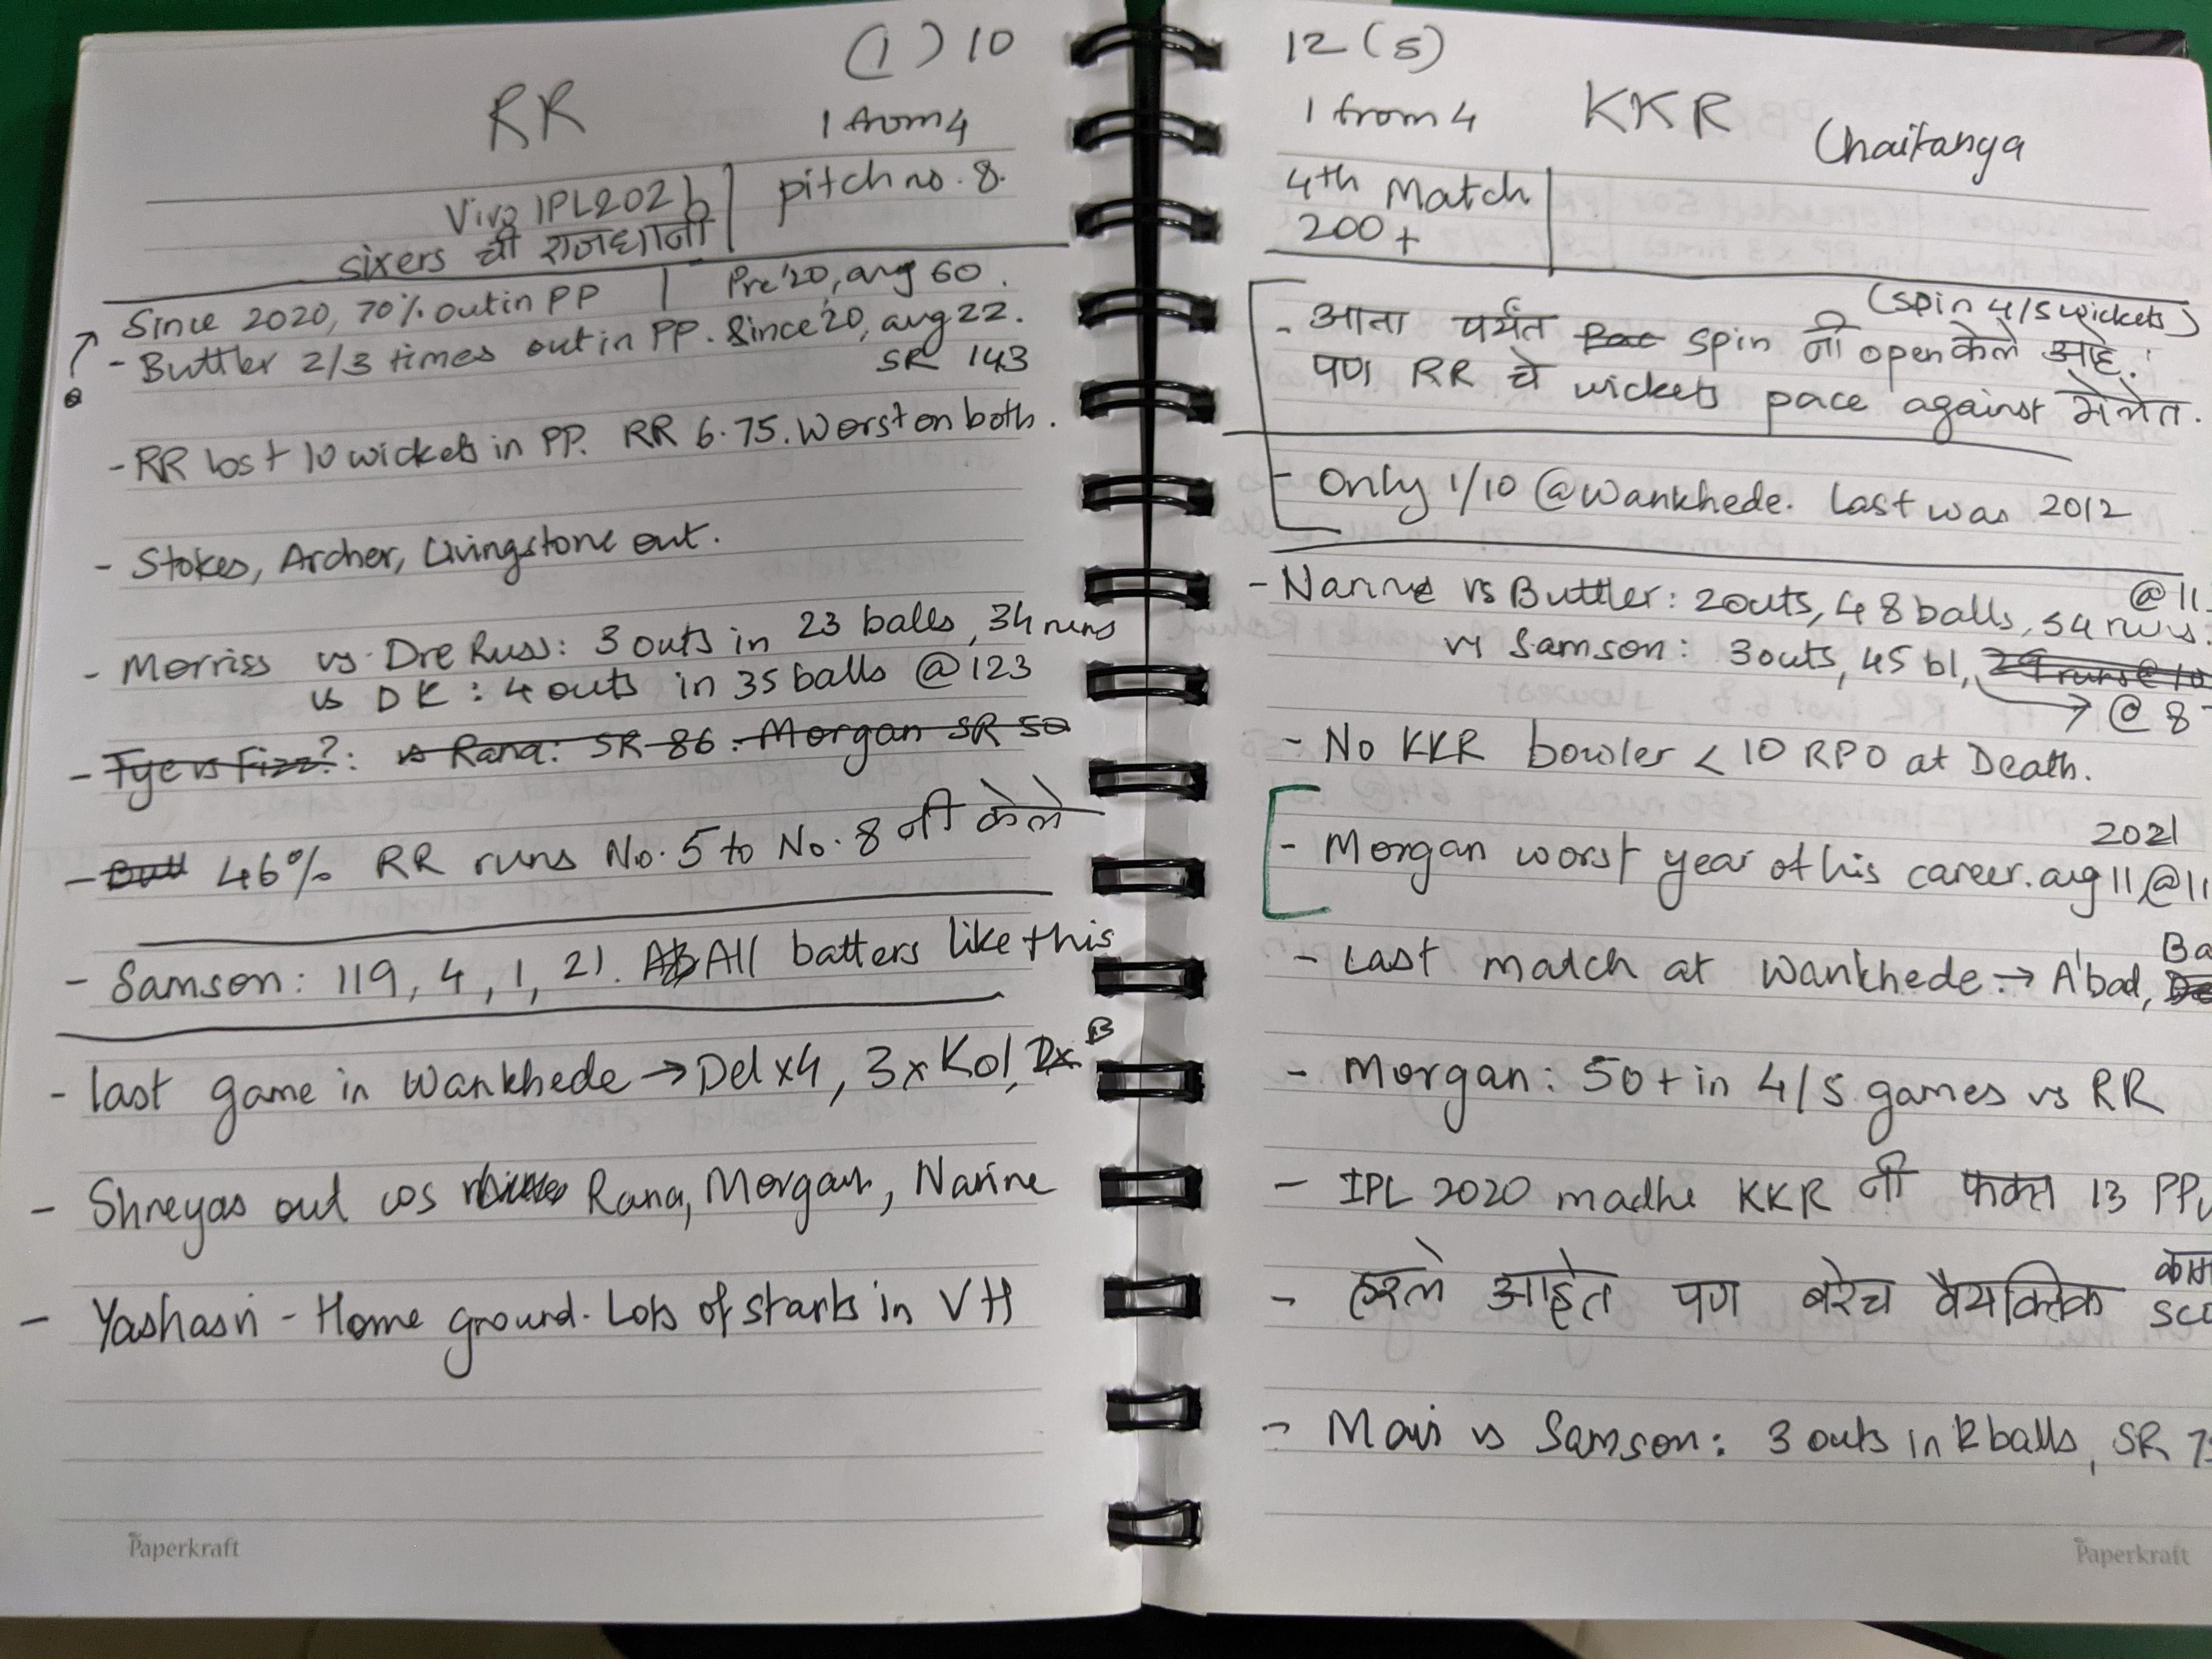 (1) 10
RR
1 from 4
Vivo IPL 2021
pitch no. 8.
sixers ची राजधानी
Since 2020, 70% out in PP | Pre '20, avg 60.
- Buttler 2/3 times out in PP. Since '20, avg 22.
SR 143
- RR lost 10 wickets in PP. RR 6.75. Worst on both.
- Stokes, Archer, Livingstone out.
- Morriss vs Dre Russ: 3 outs in 23 balls, 34 runs
vs DK: 4 outs in 35 balls @ 123
- Tye vs Fizz?: vs Rana: SR 86. Morgan SR 50
- Butt 46% RR runs No. 5 to No. 8 नी केले
- Samson: 119, 4, 1, 21. All batters like this
- last game in Wankhede → Del x4, 3x Kol, B
- Shreyas out cos Rana, Morgan, Narine
- Yashasvi - Home ground. Lots of starts in VH
Paperkraft
12 (5)
1 from 4
KKR
Chaitanya
4th Match
200+
(spin 4/5 wickets)
- आता पर्यंत Pac spin नी open केले आहे.
पण RR चे wickets pace against गेलेत.
- Only 1/10 @ Wankhede. Last was 2012
- Narine vs Buttler: 2 outs, 48 balls, 54 runs. @ 11
vs Samson: 3 outs, 45 bl, 29 runs @ 10
→ @ 8
- No KKR bowler < 10 RPO at Death.
2021
- Morgan worst year of his career. avg 11 @ 11
Ba
- Last match at Wankhede → A'bad, De
- Morgan: 50+ in 4/5 games vs RR
- IPL 2020 madhe KKR नी फक्त 13 PP
- हरले आहेत पण बरेच वैयक्तिक
- Mavi vs Samson: 3 outs in 12 balls, SR 7
Paperkraft